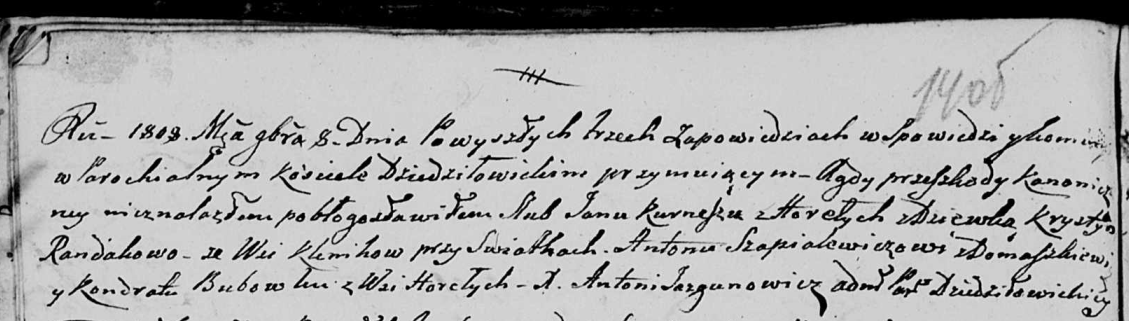 140б
Ru- 1808. Mca gbra 8. Dnia Po wyszłych trzech zapowiedziach w Spowiedzi y kom
w Parochialnym Kościele Dziedziłowickim przymuiącym - A gdy przeszkody kanonicz
ney nieznalazłem pobłogosławiłem Slub Janu Kurneszu z Horełych z Dziewką Krystyn
Randakowo - ze Wsi Klinikow przy Swiatkach Antonu Szapialewiczowi z Domaszkiewicz
y Kondratu Bubow z Wsi Horełych - X. Antoni Jazgunowicz adm Par Dziedziłowickiey